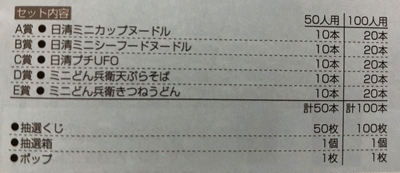 セット内容 50人用 100人用
A賞 ● 日清ミニカップヌードル 10本 20本
B賞 ● 日清ミニシーフードヌードル 10本 20本
C賞 ● 日清プチUFO 10本 20本
D賞 ● ミニどん兵衛天ぷらそば 10本 20本
E賞 ● ミニどん兵衛きつねうどん 10本 20本
計50本 計100本
●抽選くじ 50枚 100枚
●抽選箱 1個 1個
●ポップ 1枚 1枚